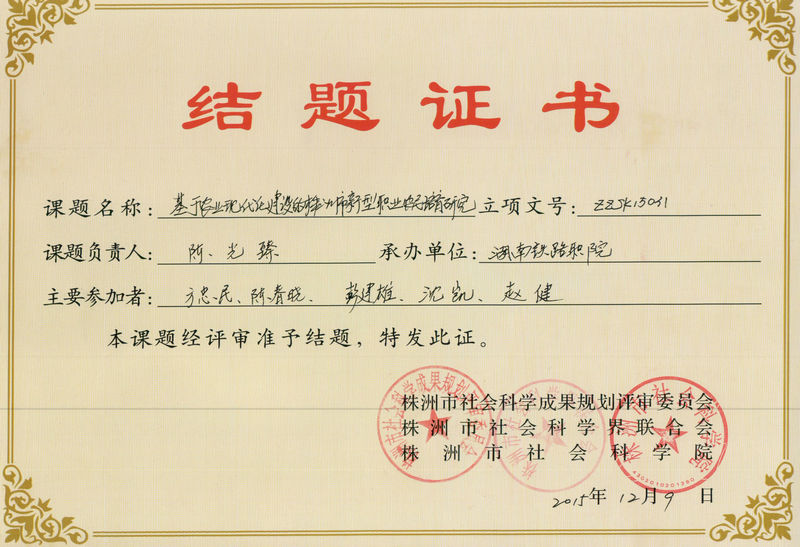 结题证书
课题名称：基于农业现代化建设的株洲市新型职业农民培育研究 立项文号：ZZSK15031
课题负责人：陈光臻 承办单位：湖南铁路职院
主要参加者：方忠民、陈春晓、彭建雄、沈凯、赵健
本课题经评审准予结题，特发此证。
株洲市社会科学成果规划评审委员会
株洲市社会科学界联合会
株洲市社会科学院
2015年12月9日
株洲市社会科学院
4302010201280